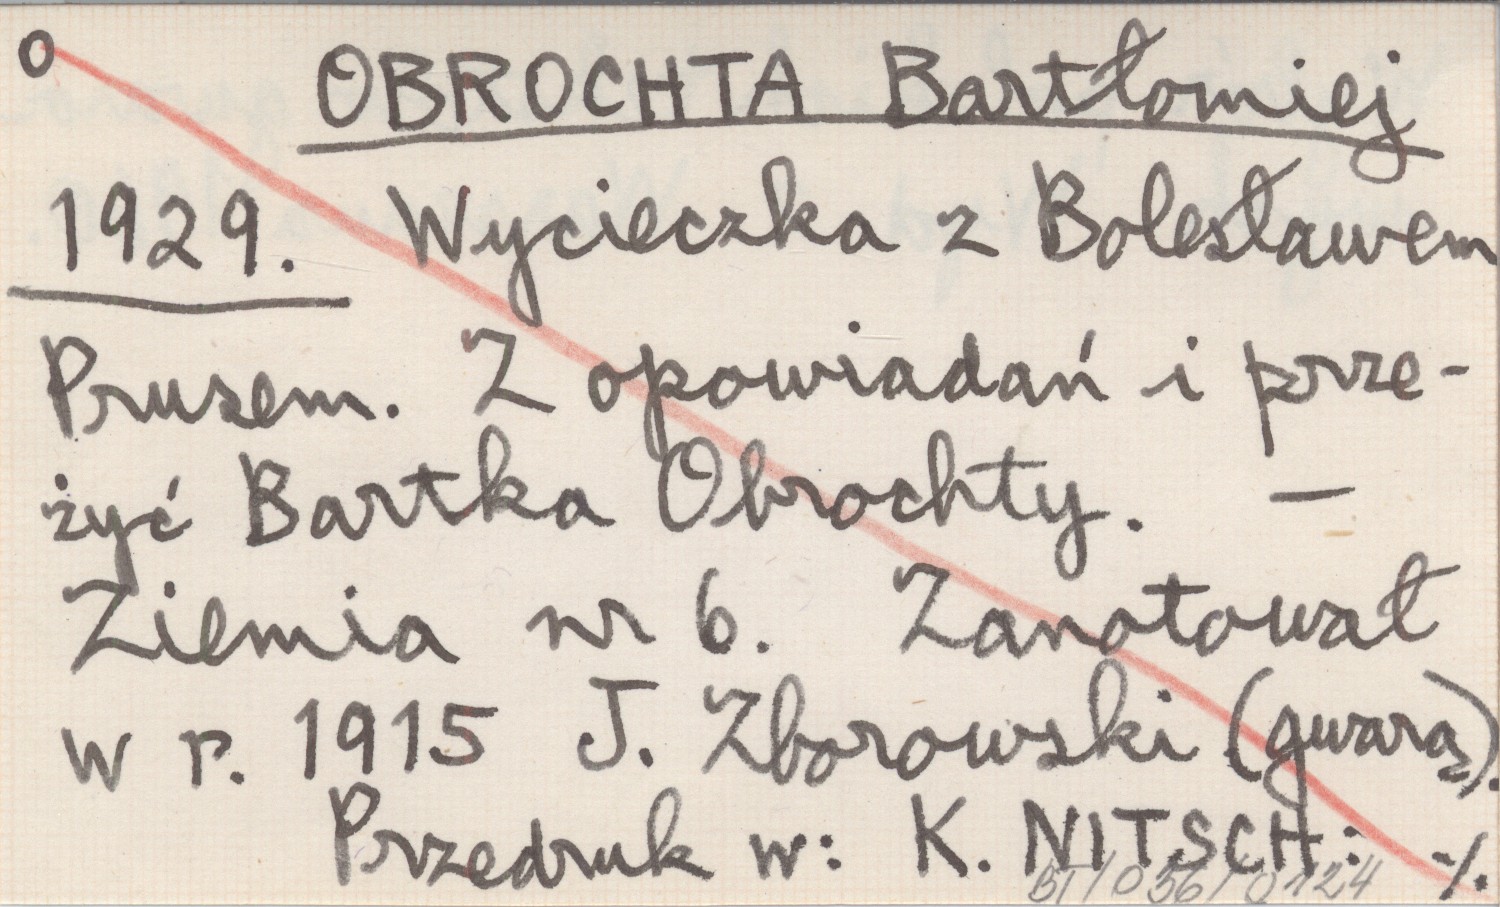 O OBROCHTA Bartłomiej
1929. Wycieczka z Bolesławem
Prusem. Z opowiadań i prze-
żyć Bartka Obrochty. —
Ziemia nr 6. Zanotował
w r. 1915 J. Zborowski (gwarą).
Przedruk w: K. NITSCH: ./.
BT/056/0124